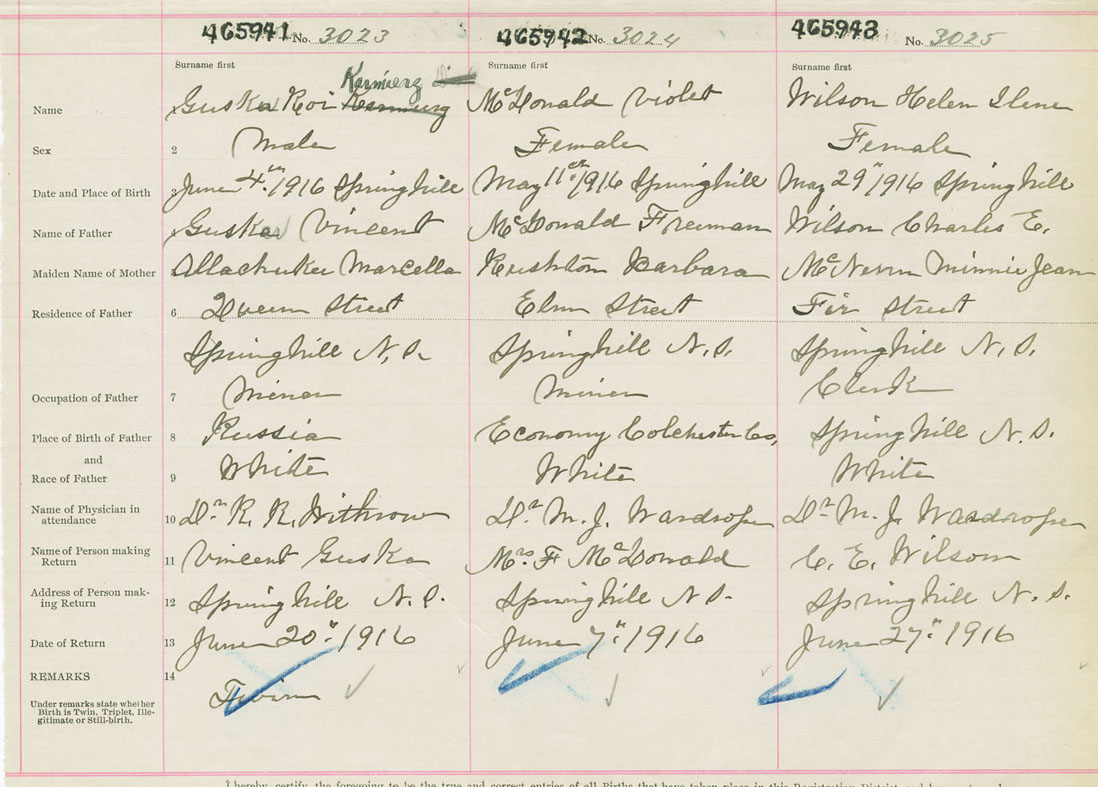 465941 No. 3023 465942 No. 3024 465943 No. 3025
Surname first Surname first Surname first
Kermierg
Name Guska Roi McDonald Violet Wilson Helen Ilene
Sex 2 Male Female Female
Date and Place of Birth 3 June 4th 1916 Springhill May 11th 1916 Springhill May 29" 1916 Springhill
Name of Father 4 Guska Vincent McDonald Freeman Wilson Charles E.
Maiden Name of Mother 5 Allachukee Marcella Rushton Barbara McNevin Minnie Jean
Residence of Father 6 Queen Street Elm Street Fir Street
Springhill N.S. Springhill N.S. Springhill N.S.
Occupation of Father 7 Miner Miner Clerk
Place of Birth of Father 8 Russia Economy Colchester Co, Springhill N.S.
and
Race of Father 9 White White White
Name of Physician in
attendance 10 Dr R. R. Withrow Dr M. J. Wardrope Dr M. J. Wardrope
Name of Person making
Return 11 Vincent Guska Mrs F McDonald C. E. Wilson
Address of Person mak-
ing Return 12 Springhill N.S. Springhill N S. Springhill N.S.
Date of Return 13 June 20" 1916 June 7" 1916 June 27" 1916
REMARKS 14
Twin
Under remarks state whether
Birth is Twin, Triplet, Ille-
gitimate or Still-birth.
I hereby certify the foregoing to be the true and correct entries of all Births that have taken place in this Registration District